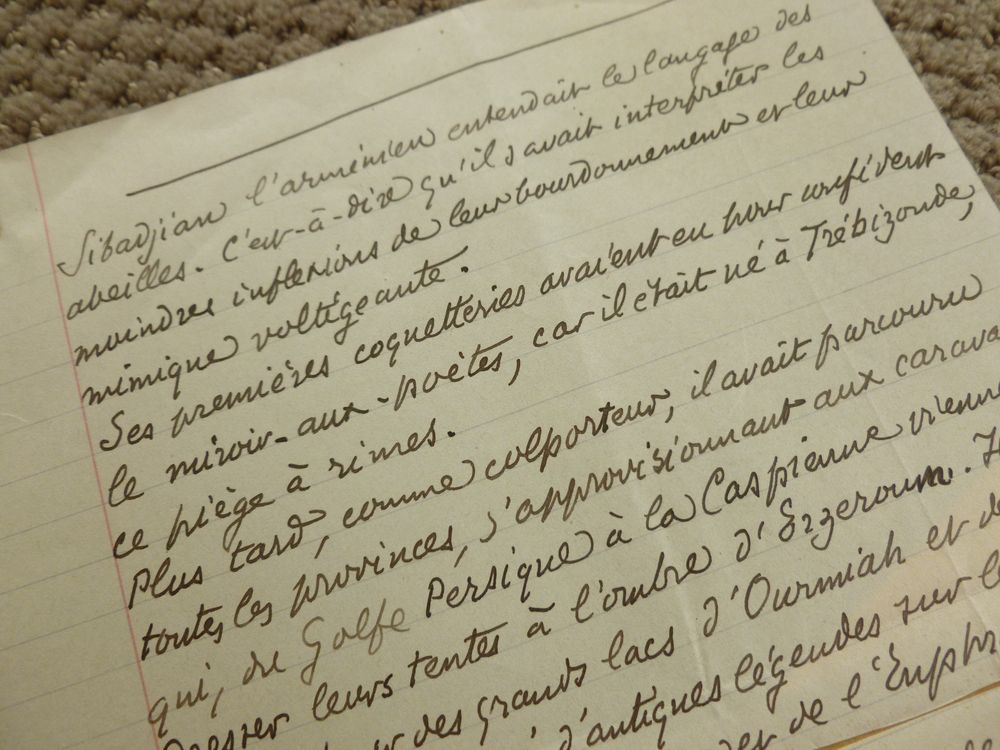 Sibadjian l'arménien entendait le langage des
abeilles. C'est-à-dire qu'il savait interpréter les
moindres inflexions de leur bourdonnement et leur
mimique voltigeante.
Ses premières coquetteries avaient eu pour confident
le miroir-aux-poètes, car il était né à Trébizonde,
ce piège à rimes.
Plus tard, comme colporteur, il avait parcouru
toutes les provinces, s'approvisionnant aux
qui, du Golfe Persique à la Caspienne
dresser leurs tentes à l'ombre d'Erzeroum.
des grands lacs d'Ourmiah et
d'antiques légendes sur
de l'